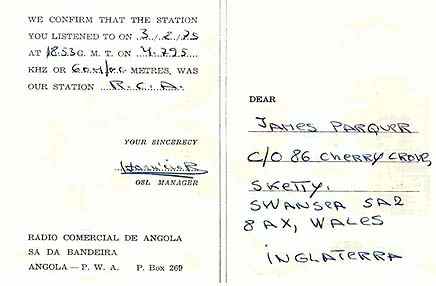 WE CONFIRM THAT THE STATION
YOU LISTENED TO ON 3/2/75
AT 18.53 G. M. T. ON 4.795
KHZ OR METRES, WAS
OUR STATION R.C.A.
YOUR SINCERECY
QSL MANAGER
RADIO COMERCIAL DE ANGOLA
SA DA BANDEIRA
ANGOLA — P. W. A. P. Box 269
DEAR
JAMES PARQUER
C/O 86 CHERRY GROVE,
SKETTY.
SWANSEA SA2
8AX, WALES
INGLATERRA